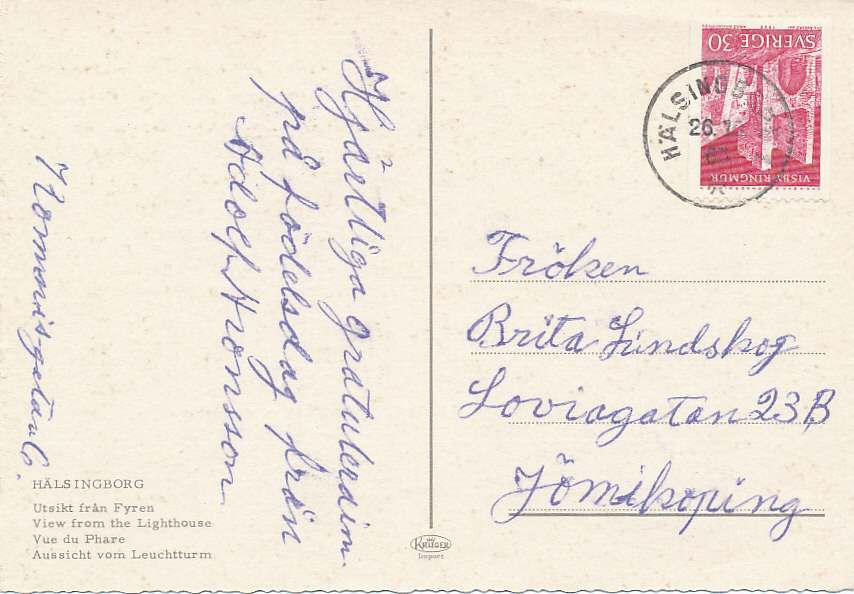 Hjärtliga gratulerdim
på födelsdag från
Adolf Aronsson
HÄLSINGBORG
Utsikt från Fyren
View from the Lighthouse
Vue du Phare
Aussicht vom Leuchtturm
KRÜGER
Import
SVERIGE 30
VISBY RINGMUR
HÄLSINGB
26.
Fröken
Brita Lundskog
Loviagatan 23B
Jömikoping